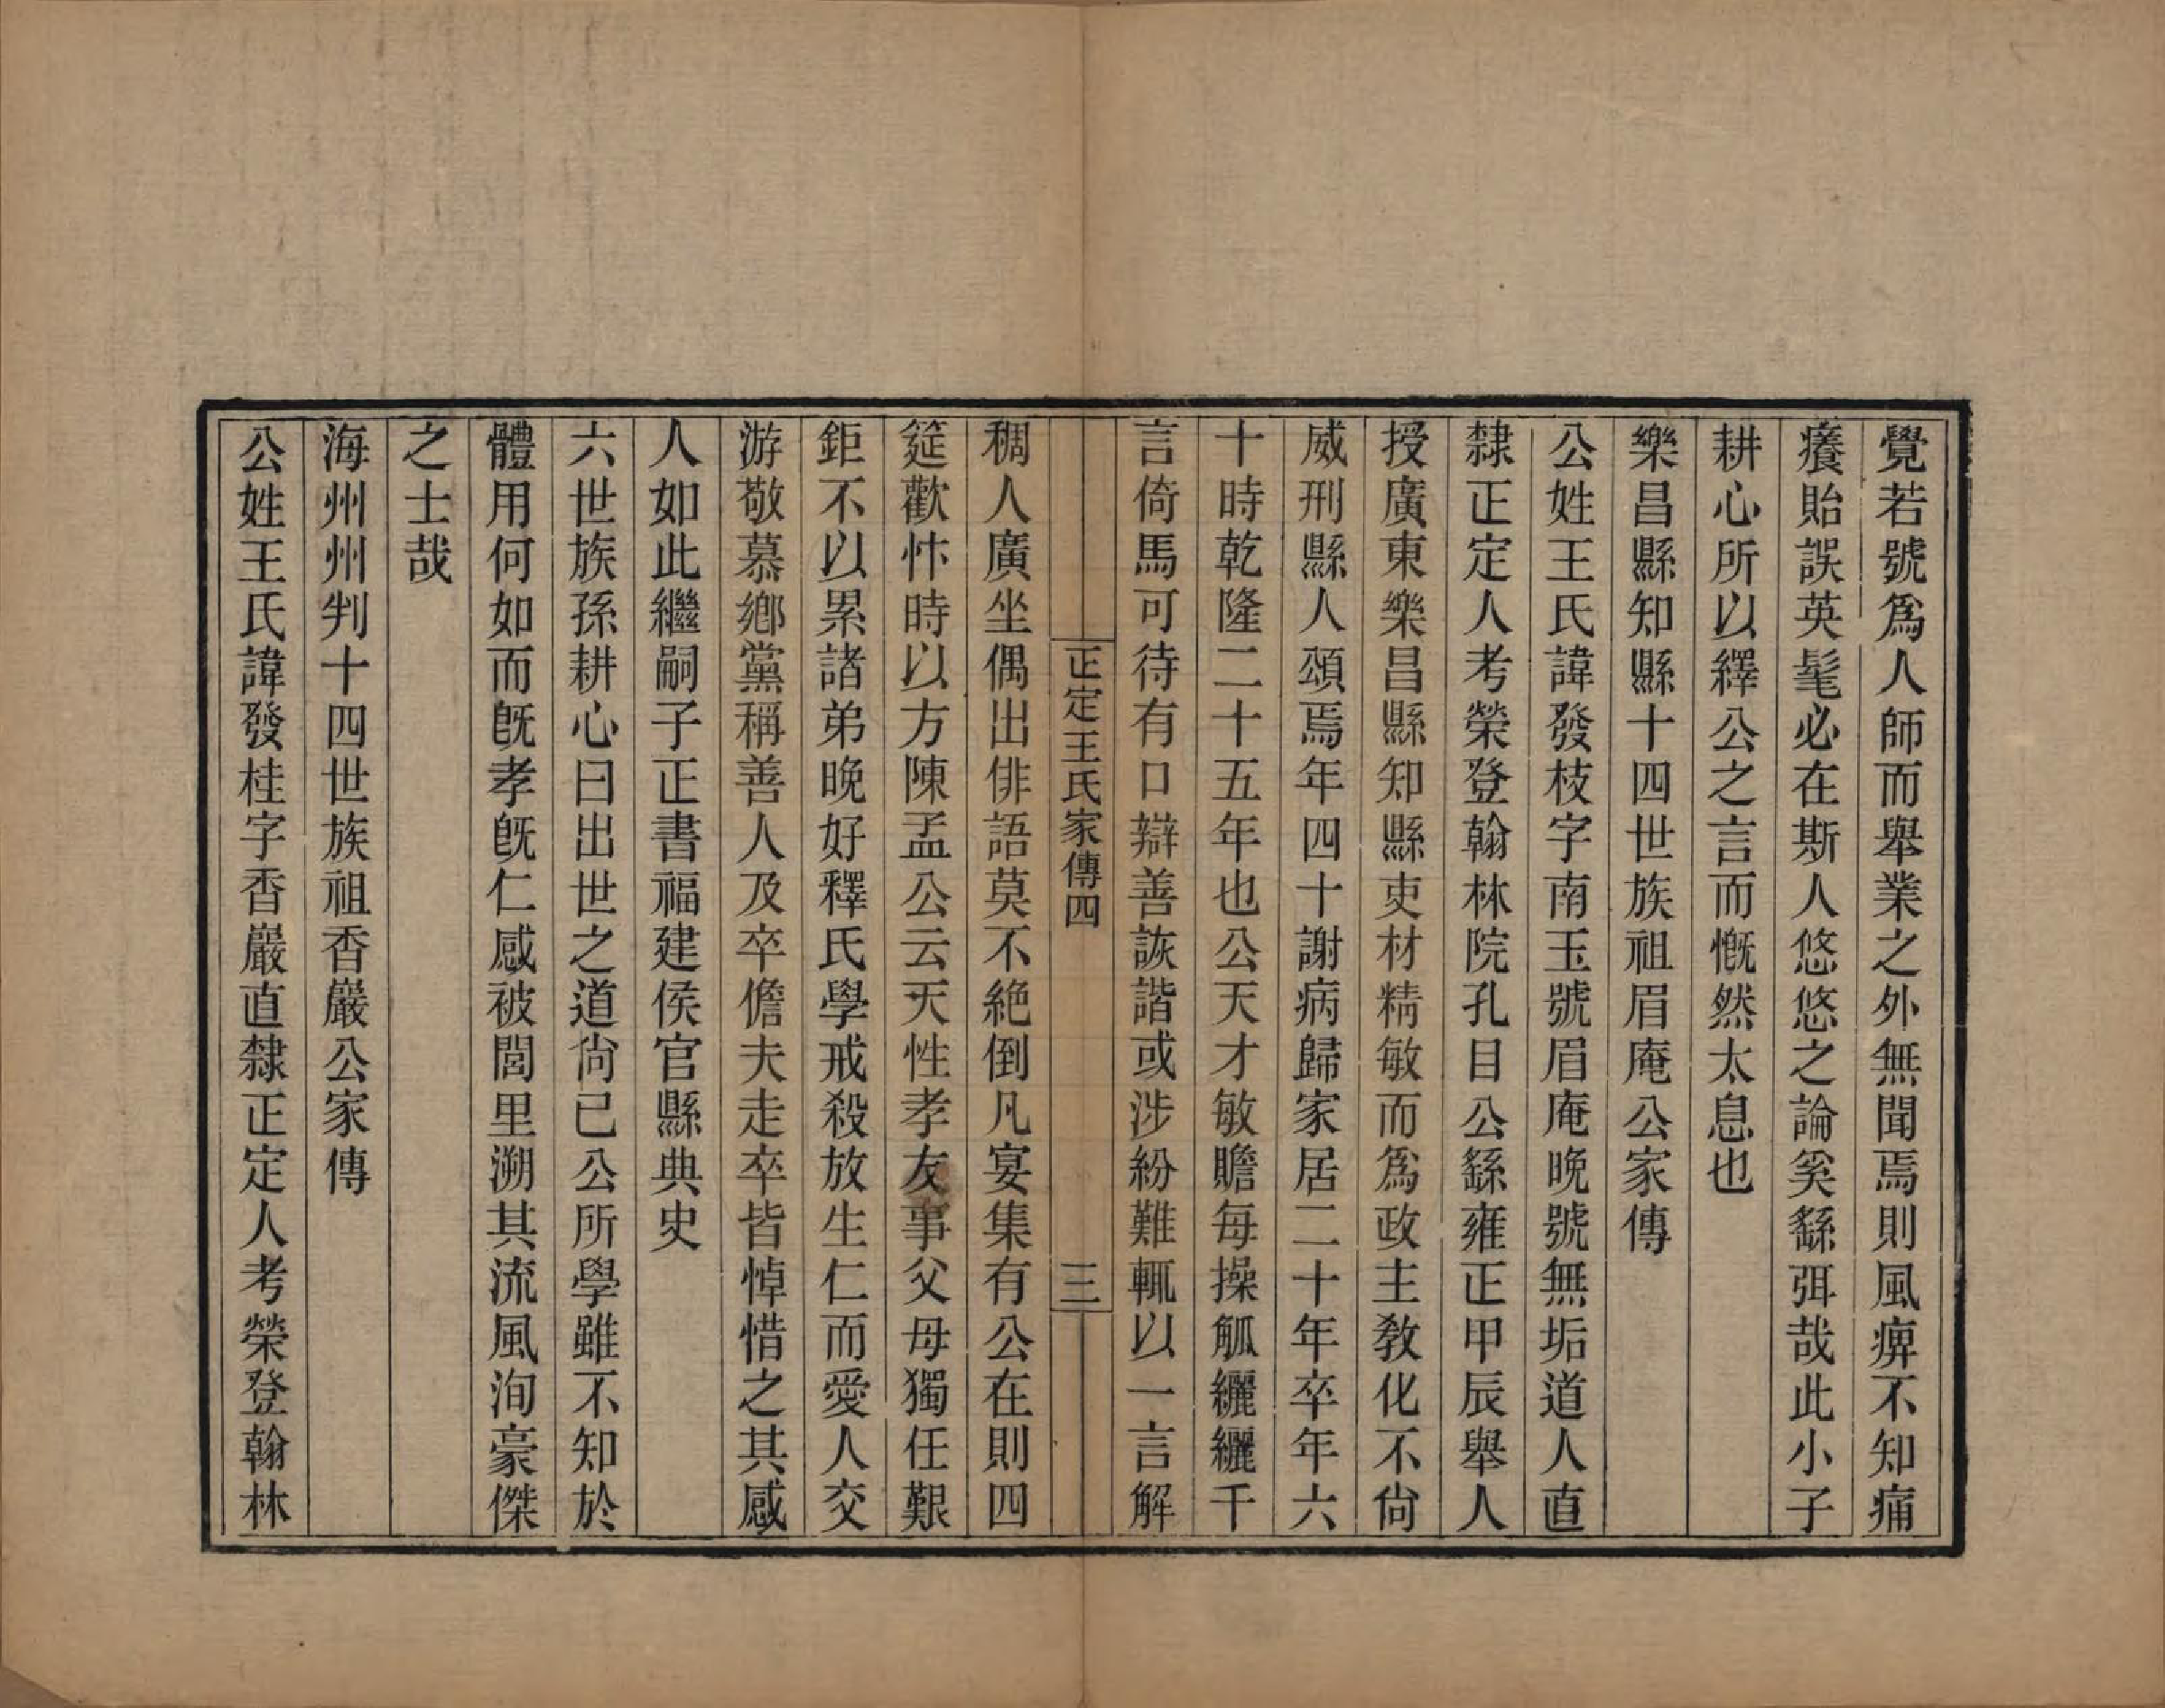 覺若號爲人師而舉業之外無聞焉則風痹不知痛
癢貽誤英髦必在斯人悠悠之論奚繇弭哉此小子
耕心所以繹公之言而慨然太息也
樂昌縣知縣十四世族祖眉庵公家傳
公姓王氏諱發枝字南玉號眉庵晚號無垢道人直
隸正定人考榮登翰林院孔目公繇雍正甲辰舉人
授廣東樂昌縣知縣吏材精敏而爲政主敎化不尙
威刑縣人頌焉年四十謝病歸家居二十年卒年六
十時乾隆二十五年也公天才敏贍每操觚纚纚千
言倚馬可待有口辯善詼諧或涉紛難輒以一言解
正定王氏家傳四
三
稠人廣坐偶出俳語莫不絕倒凡宴集有公在則四
筵歡忭時以方陳孟公云天性孝友事父母獨任艱
鉅不以累諸弟晚好釋氏學戒殺放生仁而愛人交
游敬慕鄉黨稱善人及卒儋夫走卒皆悼惜之其感
人如此繼嗣子正書福建侯官縣典史
六世族孫耕心曰出世之道尙已公所學雖不知於
體用何如而旣孝旣仁感被閭里溯其流風洵豪傑
之士哉
海州州判十四世族祖香巖公家傳
公姓王氏諱發桂字香巖直隸正定人考榮登翰林